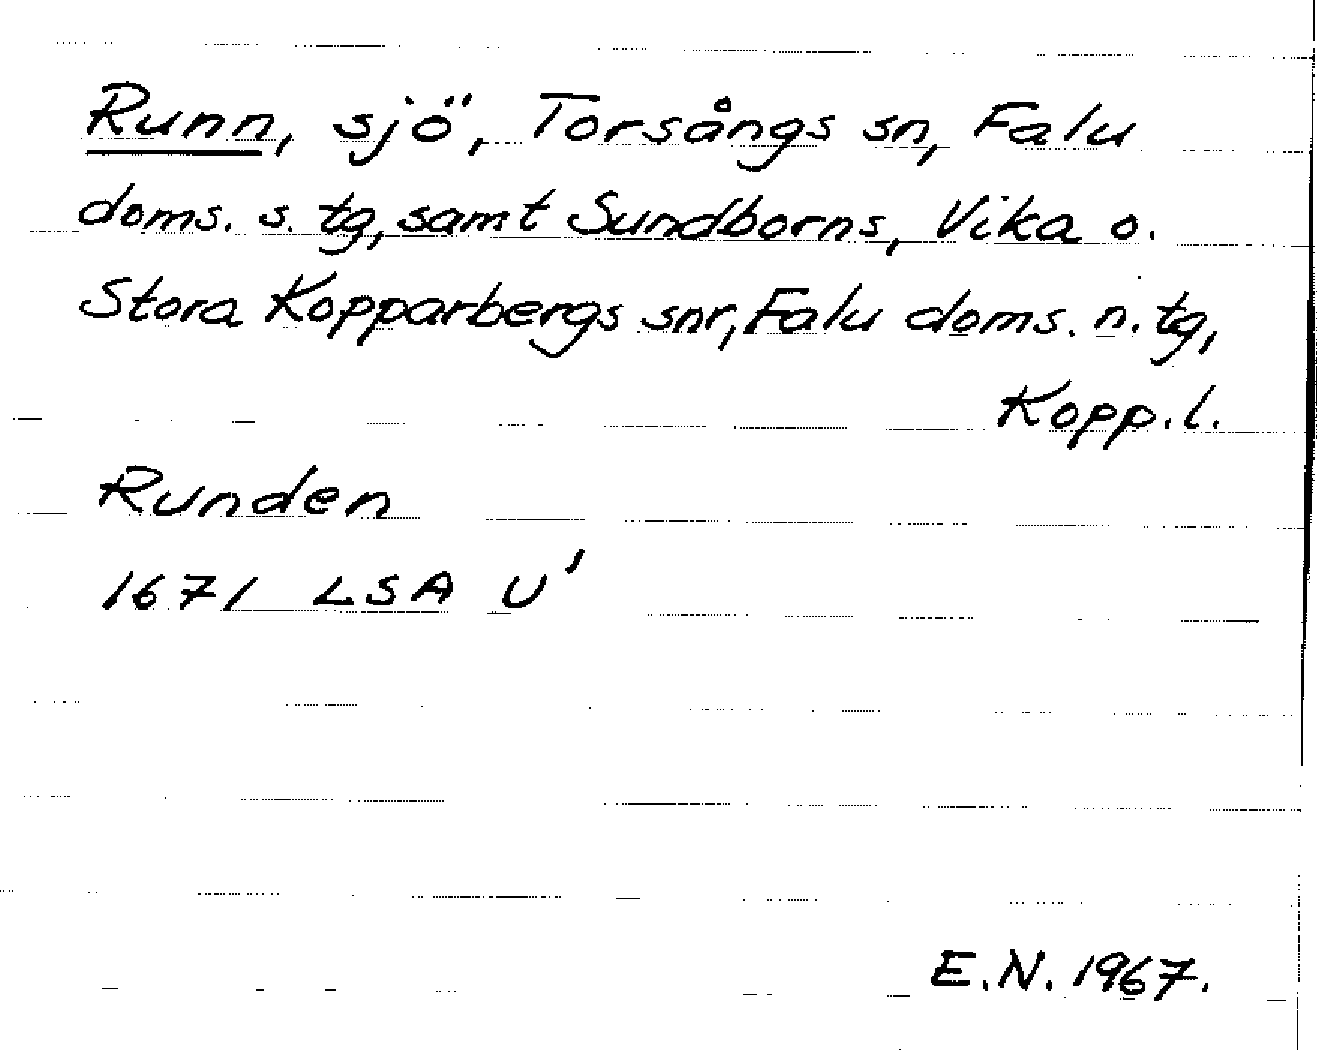 Runn, sjö, Torsångs sn, Falu
doms. s. tg, samt Sundborns, Vika o.
Stora Kopparbergs snr, Falu doms. n. tg,
Kopp.l.
Runden
1671 LSA U'
E.N. 1967.